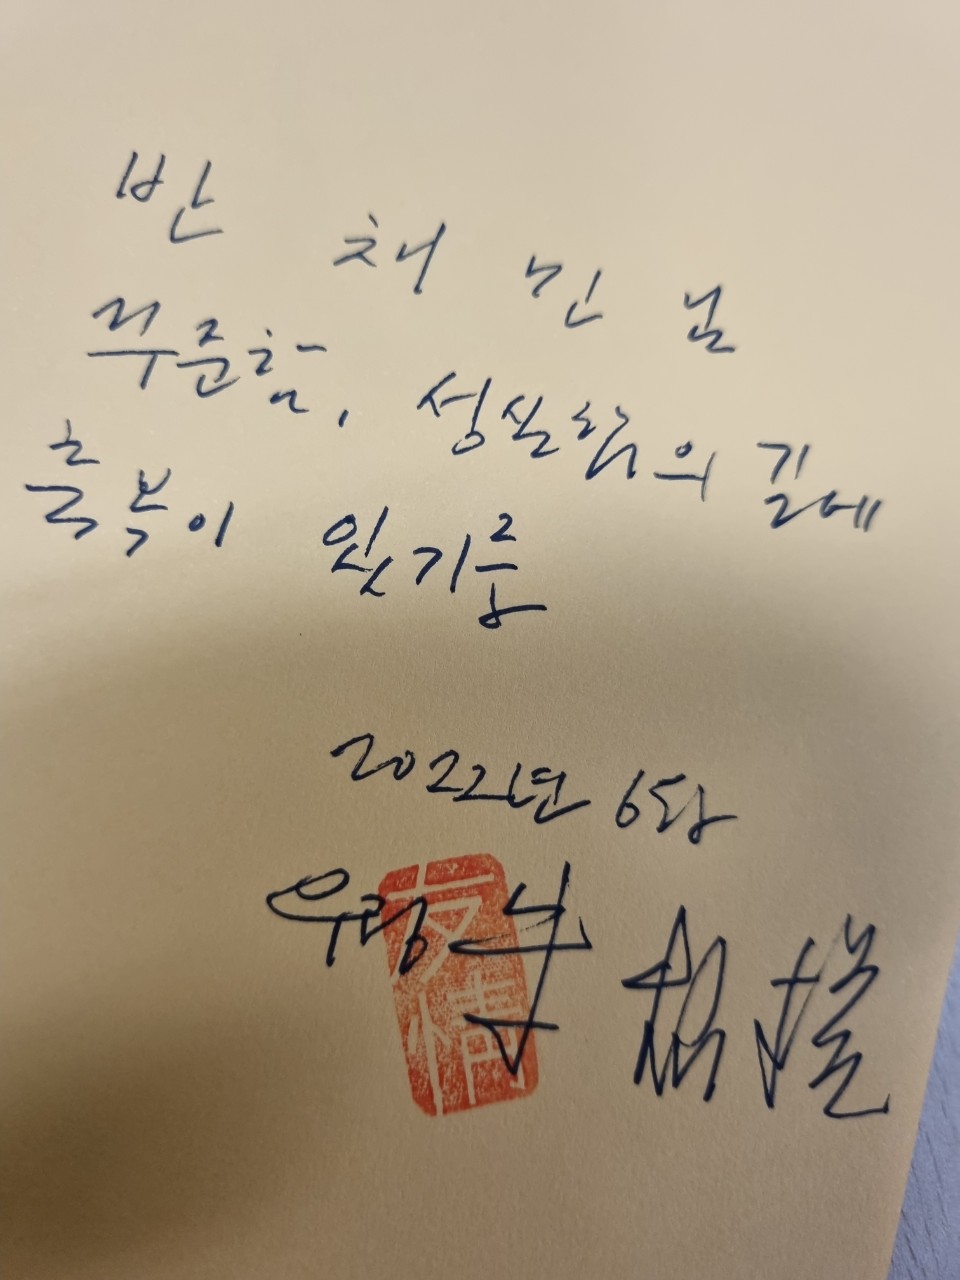 반 채 민 님
꾸준함, 성실함의 길에
축복이 있기를
2022년 6월
우정
友情